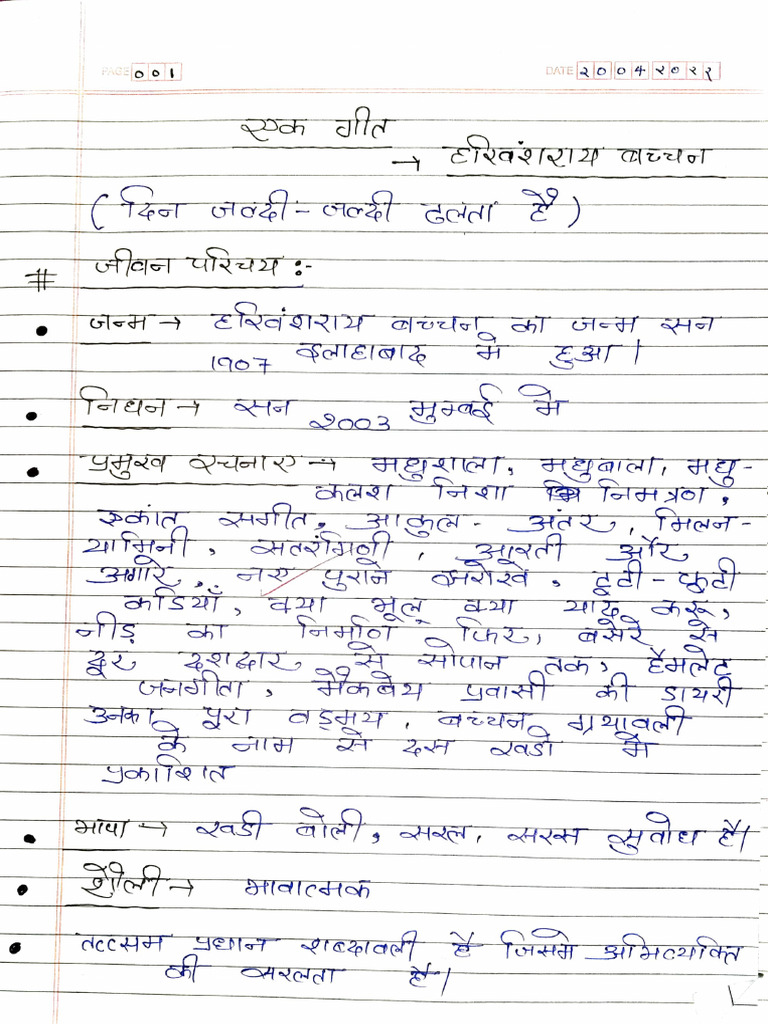 PAGE 001
DATE २००४२०२२
एक गीत
→ हरिवंशराय बच्चन
(दिन जल्दी-जल्दी ढलता है)
# जीवन परिचय :-
• जन्म → हरिवंशराय बच्चन का जन्म सन
१९०७ इलाहाबाद मे हुआ।
• निधन → सन २००3 मुम्बई मे
• प्रमुख रचनाए → मधुशाला, मधुबाला, मधु-
कलश निशा निमत्रण,
एकांत सगीत, आकुल- अंतर, मिलन-
यामिनी, सतरंगिणी, आरती और
अगारे, नए पुराने झरोखे, टूटी-फूटी
कडियाँ, क्या भूलू क्या याद करू,
नीड़ का निर्माण फिर, बसेरे से
दूर दशद्वार से सोपान तक, हैमलेट
जनगीता, मैकबेथ प्रवासी की डायरी
उनका पूरा वड्मय, बच्चन ग्रथावली
के नाम से दस खडो मे
प्रकाशित
• भाषा → खडी बोली, सरल, सरस सुबोध है।
• शैली → भावात्मक
• तत्सम प्रधान शब्दावली है जिसमे अभिव्यक्ति
की सरलता है।